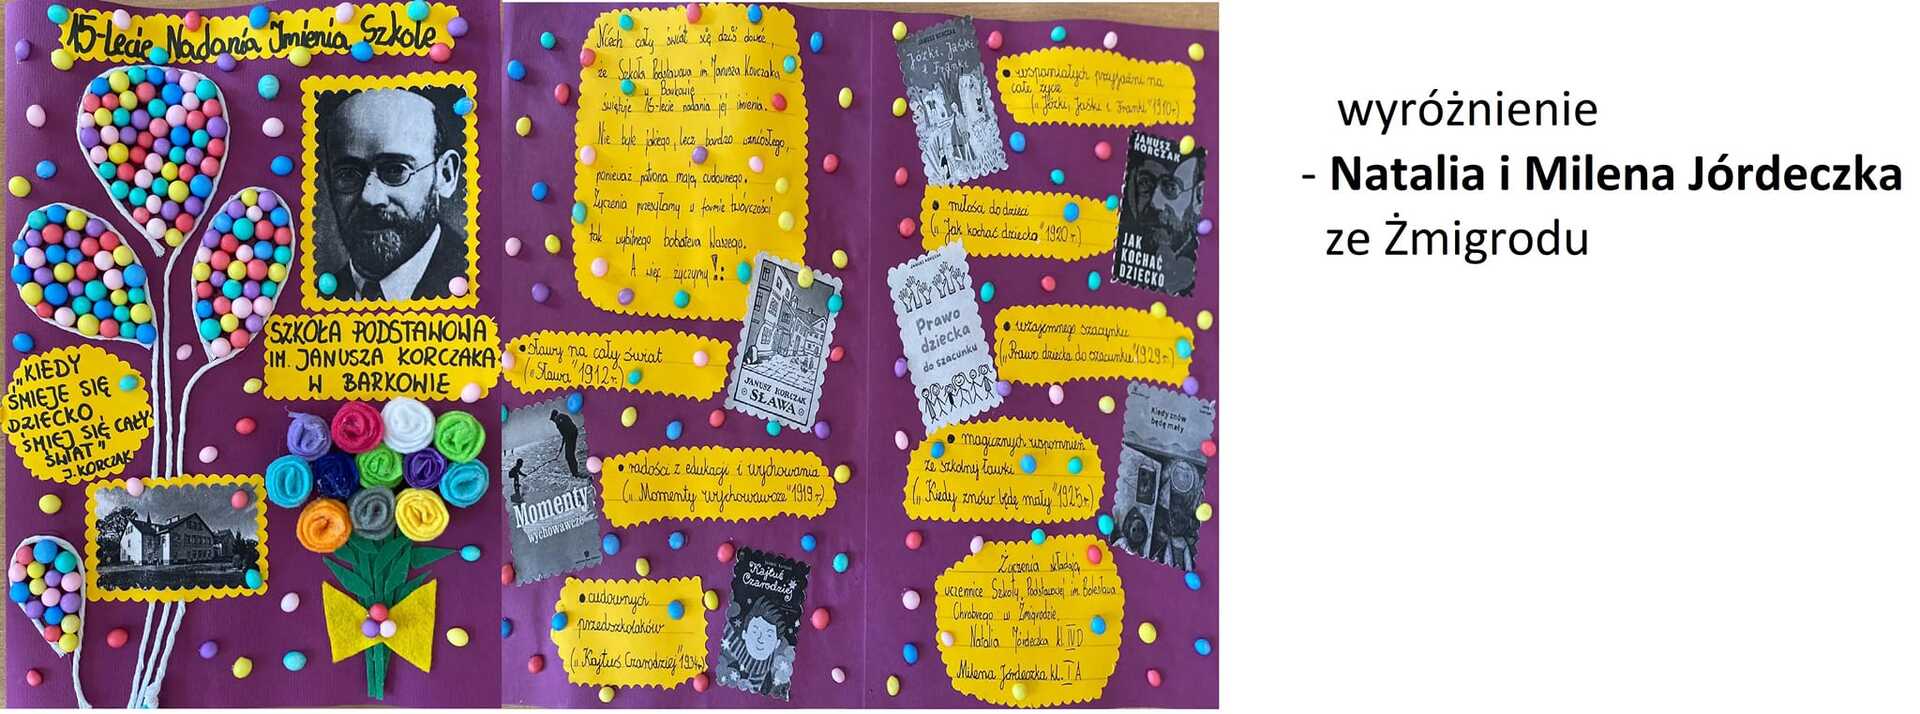 15-lecie Nadania Imienia Szkole
SZKOŁA PODSTAWOWA
IM. JANUSZA KORCZAKA
W BARKOWIE
"KIEDY
ŚMIEJE SIĘ
DZIECKO
ŚMIEJ SIĘ CAŁY
ŚWIAT"
J. KORCZAK
Niech cały świat się dziś dowie,
że Szkoła Podstawowa im. Janusza Korczaka
w Barkowie
świętuje 15-lecie nadania jej imienia.
Nie byle jakiego, lecz bardzo wzniosłego,
ponieważ patrona mają cudownego.
Życzenia przesyłamy w formie twórczości
tak wybitnego bohatera Waszego.
A więc życzymy!:
• sławy na cały świat
("Sława" 1912 r.)
JANUSZ KORCZAK
SŁAWA
Momenty
wychowawcze
• radości z edukacji i wychowania
(„Momenty wychowawcze" 1919 r.)
• cudownych
przedszkolaków
(„Kajtuś Czarodziej" 1934r.)
Kajtuś
Czarodziej
JANUSZ KORCZAK
Józki, Jaśki
i Franki
• wspaniałych przyjaźni na
całe życie
(„Józki, Jaśki i Franki" 1910r.)
• miłości do dzieci
(„Jak kochać dziecko" 1920 r.)
JANUSZ
KORCZAK
JAK
KOCHAĆ
DZIECKO
JANUSZ KORCZAK
Prawo
dziecka
do szacunku
• wzajemnego szacunku
(„Prawo dziecka do szacunku" 1929 r.)
• magicznych wspomnień
ze szkolnej ławki
(„Kiedy znów będę mały" 1925r.)
Kiedy znów
będę mały
Życzenia składają
uczennice Szkoły Podstawowej im. Bolesława
Chrobrego w Żmigrodzie
Natalia Jórdeczka kl. IV D
Milena Jórdeczka kl. I A
wyróżnienie
- Natalia i Milena Jórdeczka
ze Żmigrodu